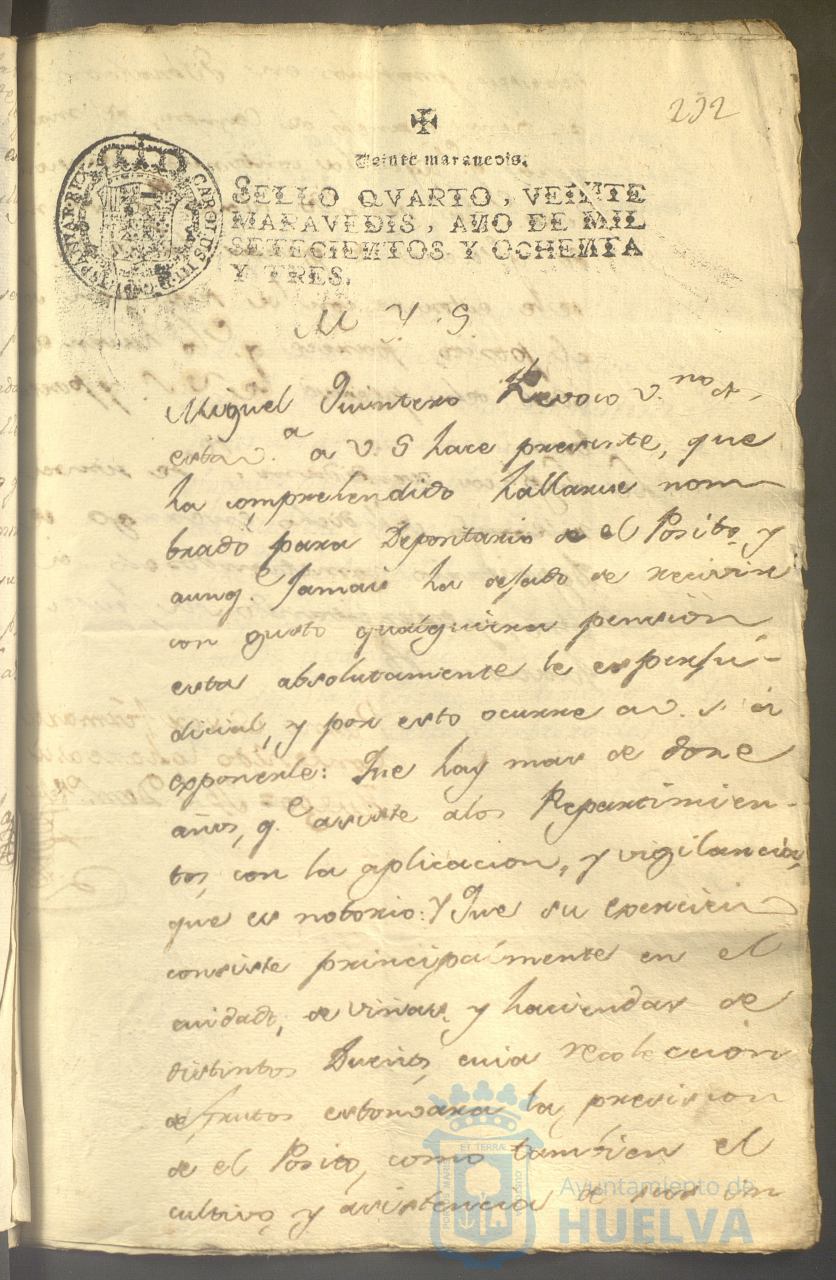 232
Veinte maravedis.
SELLO QVARTO, VEINTE
MARAVEDIS, AÑO DE MIL
SETECIENTOS Y OCHENTA
Y TRES.
CAROLUS III D.G. HISPANIAR REX
M Y S
Miguel Quintero v.no d
esta v.a a V. S hace presente, que
ha comprehendido hallarse nom
brado para Depositario de el Posito, y
aunq.e Jamas ha dejado de recivir
con gusto qualquiera pension
esta absolutamente le es perju-
dicial, y por esto ocurre a V. S. á
exponerle: Que hay mas de doze
años, q.e asiste alos Repartimien-
tos, con la aplicacion, y vigilancia,
que es notorio: Y Que su exercicio
consiste principalmente en el
cuidado, de viñas, y haciendas de
distintos Dueños, cuia recoleccion
de frutos estorvara la precision
de el Posito, como tambien el
cultivo, y asistencia de sus
PORTUS MARIS ET TERRÆ CUSTODIA
Ayuntamiento de
HUELVA